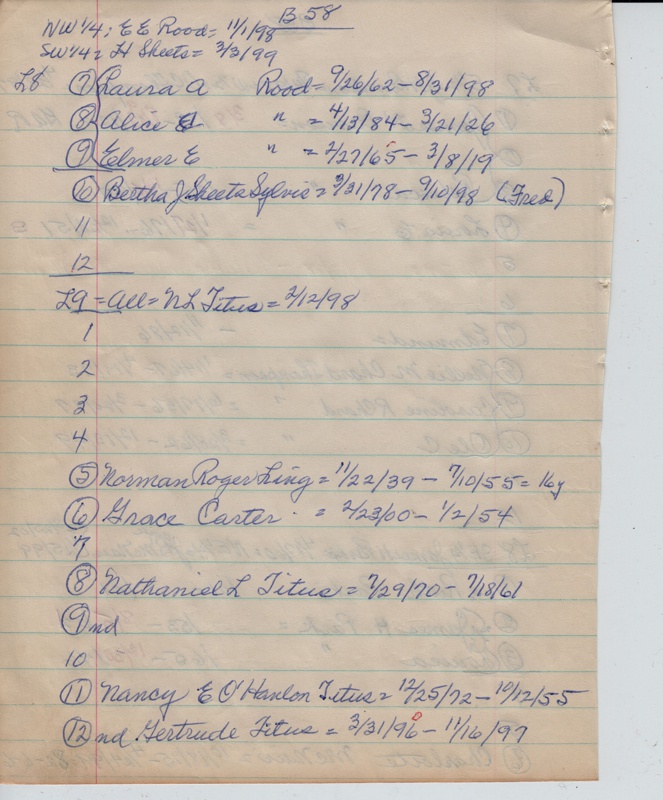 B 58
NW 1/4; E E Rood = 11/1/98
SW 1/4 = H Sheets = 3/3/99
L8 (7) Laura A Rood = 9/26/62 - 8/31/98
(8) Alice " = 4/13/84 - 3/21/26
(9) Elmer E " = 2/27/65 - 3/8/19
(10) Bertha J Sheets Sylvis = 3/31/78 - 9/10/98 (Fred)
11
12
L9 = All = N L Titus = 2/12/98
1
2
3
4
(5) Norman Roger King = 11/22/39 - 7/10/55 = 16y
(6) Grace Carter = 2/23/00 - 1/2/54
7
(8) Nathaniel L Titus = 7/29/70 - 7/18/61
(9) nd
10
(11) Nancy E O'Hanlon Titus = 12/25/72 - 10/12/55
(12) nd Gertrude Titus = 3/31/96 - 11/16/97